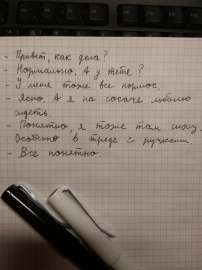 - Привет, как дела?
- Нормально. А у тебя?
- У меня тоже все нормас.
- Ясно. А я на сосаче люблю
сидеть.
Понятно, я тоже там сижу.
Особенно в треде с ручками
- Все понятно.